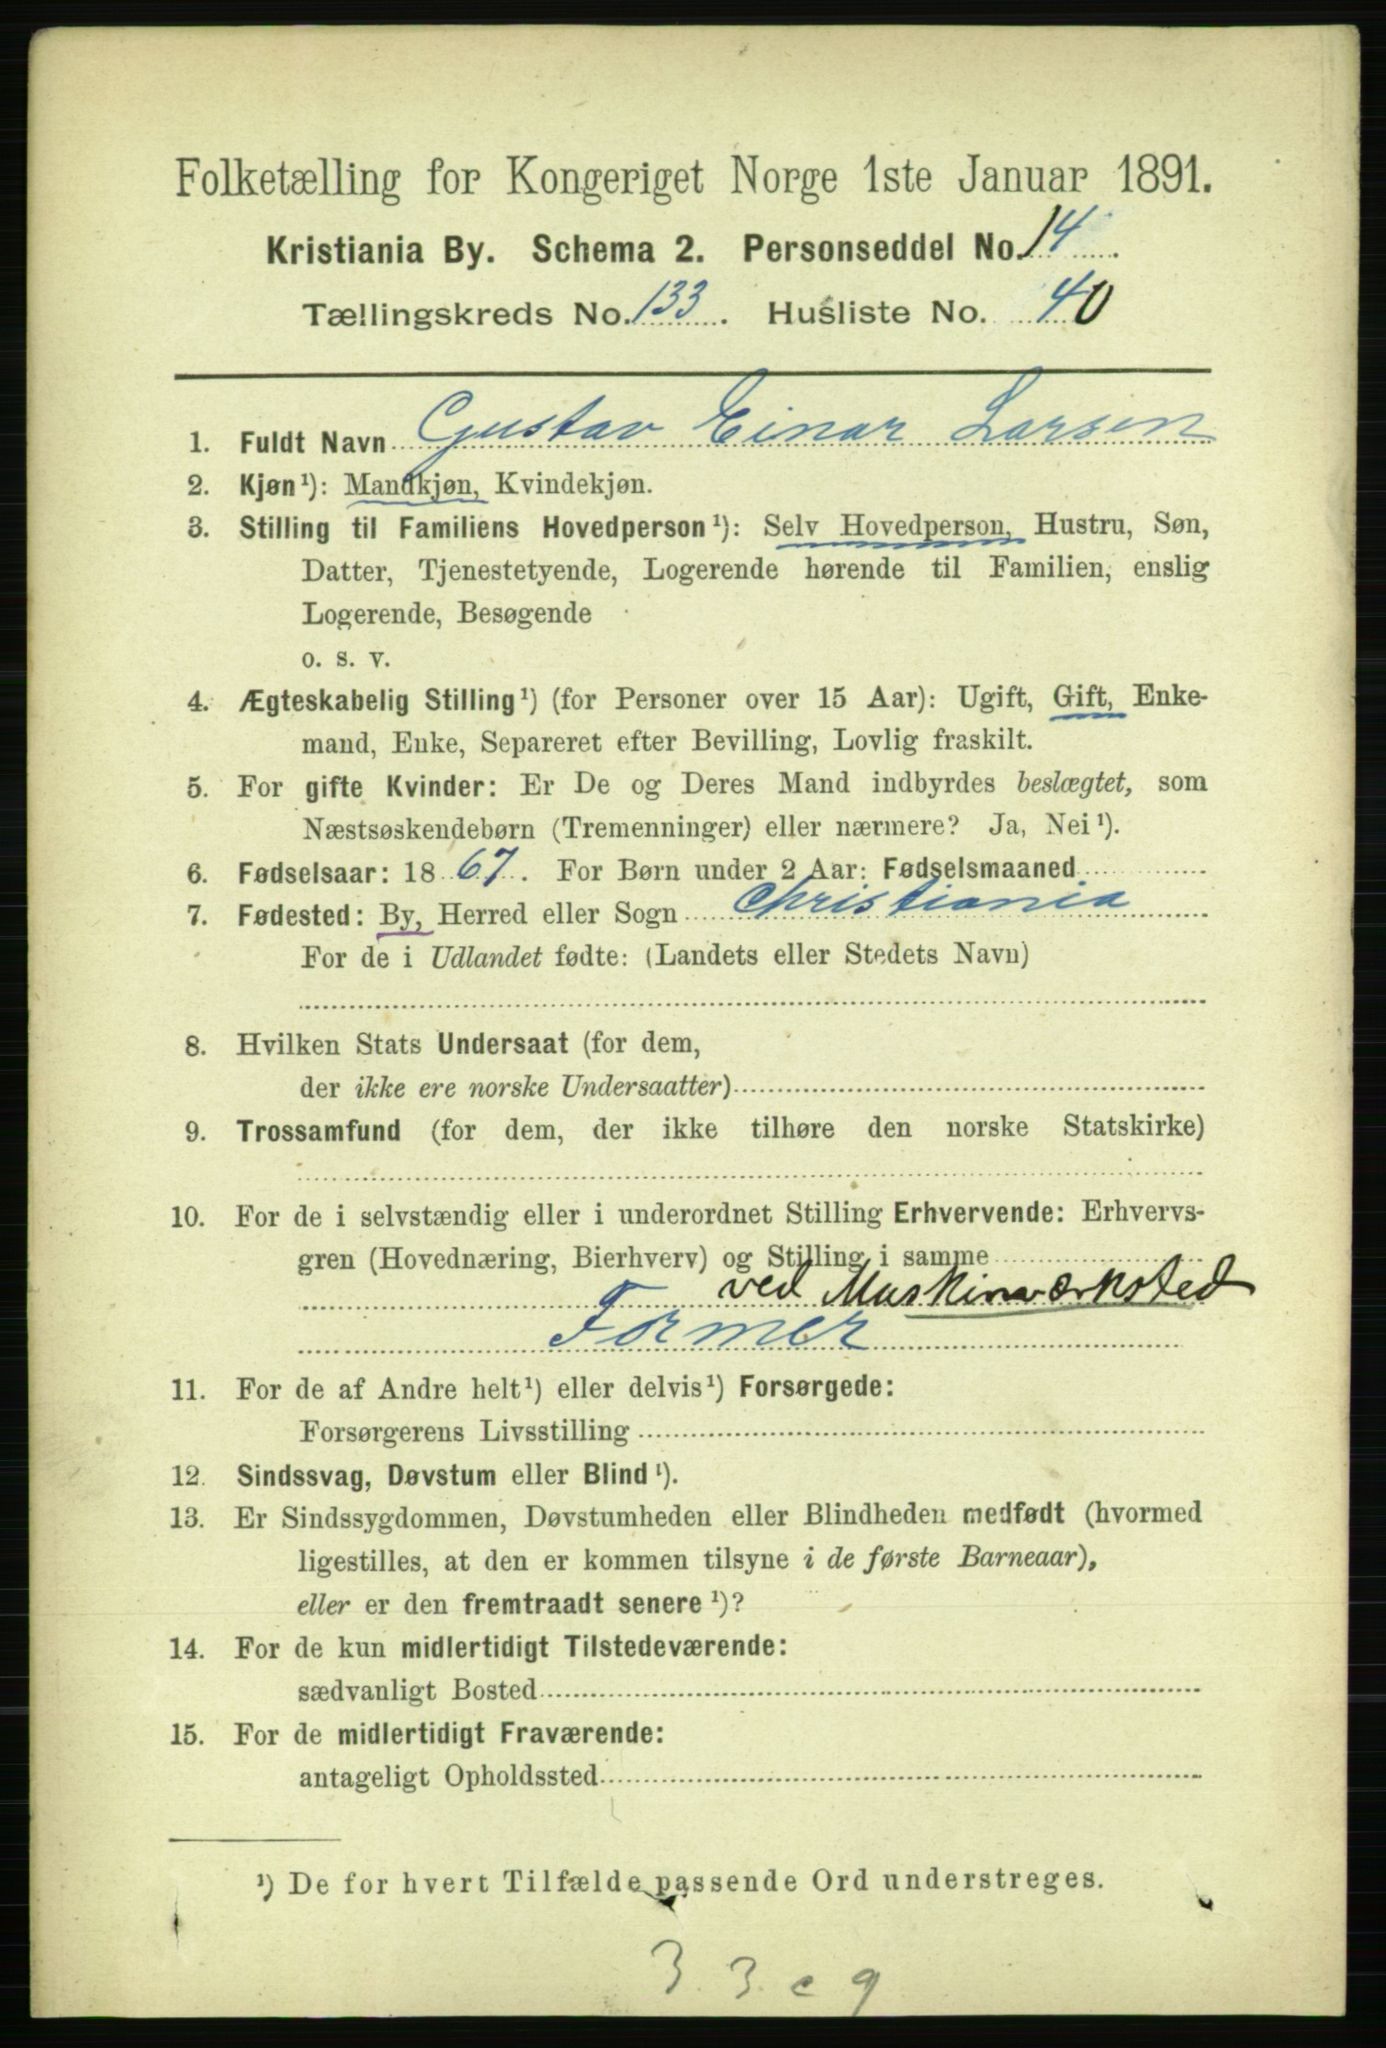 Folketælling for Kongeriget Norge 1ste Januar 1891.
Kristiania By. Schema 2. Personseddel No. 14
Tællingskreds No. 133. Husliste No. 40
1. Fuldt Navn Gustav Einar Larsen
2. Kjøn¹): Mandkjøn, Kvindekjøn.
3. Stilling til Familiens Hovedperson¹): Selv Hovedperson, Hustru, Søn,
Datter, Tjenestetyende, Logerende hørende til Familien, enslig
Logerende, Besøgende
o. s. v.
4. Ægteskabelig Stilling¹) (for Personer over 15 Aar): Ugift, Gift, Enke-
mand, Enke, Separeret efter Bevilling, Lovlig fraskilt.
5. For gifte Kvinder: Er De og Deres Mand indbyrdes beslægtet, som
Næstsøskendebørn (Tremenninger) eller nærmere? Ja, Nei¹).
6. Fødselsaar: 1867. For Børn under 2 Aar: Fødselsmaaned
7. Fødested: By, Herred eller Sogn Christiania
For de i Udlandet fødte: (Landets eller Stedets Navn)
8. Hvilken Stats Undersaat (for dem,
der ikke ere norske Undersaatter)
9. Trossamfund (for dem, der ikke tilhøre den norske Statskirke)
10. For de i selvstændig eller i underordnet Stilling Erhvervende: Erhvervs-
gren (Hovednæring, Bierhverv) og Stilling i samme
ved Maskinværksted
Former
11. For de af Andre helt¹) eller delvis¹) Forsørgede:
Forsørgerens Livsstilling
12. Sindssvag, Døvstum eller Blind¹).
13. Er Sindssygdommen, Døvstumheden eller Blindheden medfødt (hvormed
ligestilles, at den er kommen tilsyne i de første Barneaar),
eller er den fremtraadt senere¹)?
14. For de kun midlertidigt Tilstedeværende:
sædvanligt Bosted
15. For de midlertidigt Fraværende:
antageligt Opholdssted
¹) De for hvert Tilfælde passende Ord understreges.
3.3. c 9